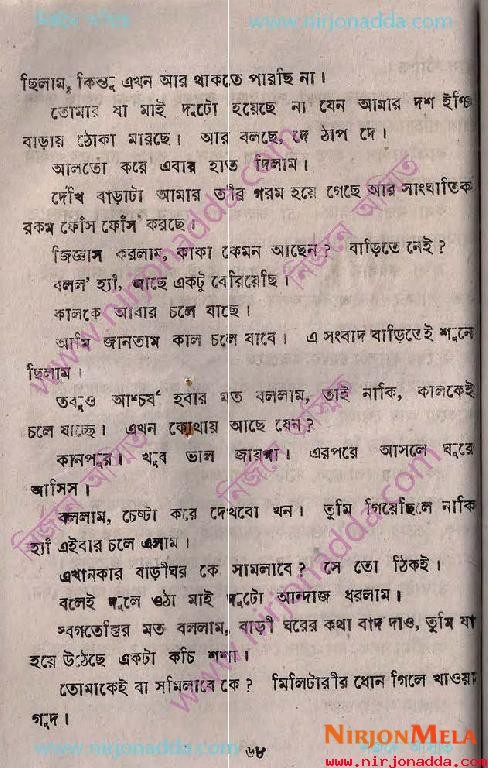 নির্জনে অস্মিত www.nirjonadda.com
ছিলাম, কিন্তু এখন আর থাকতে পারছি না।
তোমার যা মাই দুটো হয়েছে না যেন আমার দশ ইঞ্চি
বাড়ায় ঠোকা মারছে। আর বলছে, দে ঠাপ দে।
আলতো করে এবার হাত দিলাম।
দেখি বাড়াটা আমার তীর গরম হয়ে গেছে আর সাংঘাতিক
রকম ফোঁস ফোঁস করছে।
জিজ্ঞাস করলাম, কাকা কেমন আছেন? বাড়িতে নেই?
বলল' হ্যাঁ, আছে একটু বেরিয়েছি।
কালকে আবার চলে যাছে।
আমি জানতাম কাল চলে যাবে। এ সংবাদ বাড়িতেই শুনে
ছিলাম।
তবুও আশ্চর্য হবার মত বললাম, তাই নাকি, কালকেই
চলে যাচ্ছে। এখন কোথায় আছে যেন?
কানপুরে। খুব ভাল জায়গা। এরপরে আসলে ঘুরে
আসিস।
বললাম, চেষ্টা করে দেখবো খন। তুমি গিয়েছিলে নাকি
হ্যাঁ এইবার চলে এলাম।
এখানকার বাড়ীঘর কে সামলাবে? সে তো ঠিকই।
বলেই দুলে ওঠা মাই দুটো আন্দাজ ধরলাম।
স্বগতোক্তির মত বললাম, বাড়ী ঘরের কথা বাদ দাও, তুমি যা
হয়ে উঠেছে একটা কচি শশা।
তোমাকেই বা সামলাবে কে? মিলিটারীর ধোন গিলে খাওয়া
গুদ।
৬৪
NIRJONMELA
www.nirjonadda.com